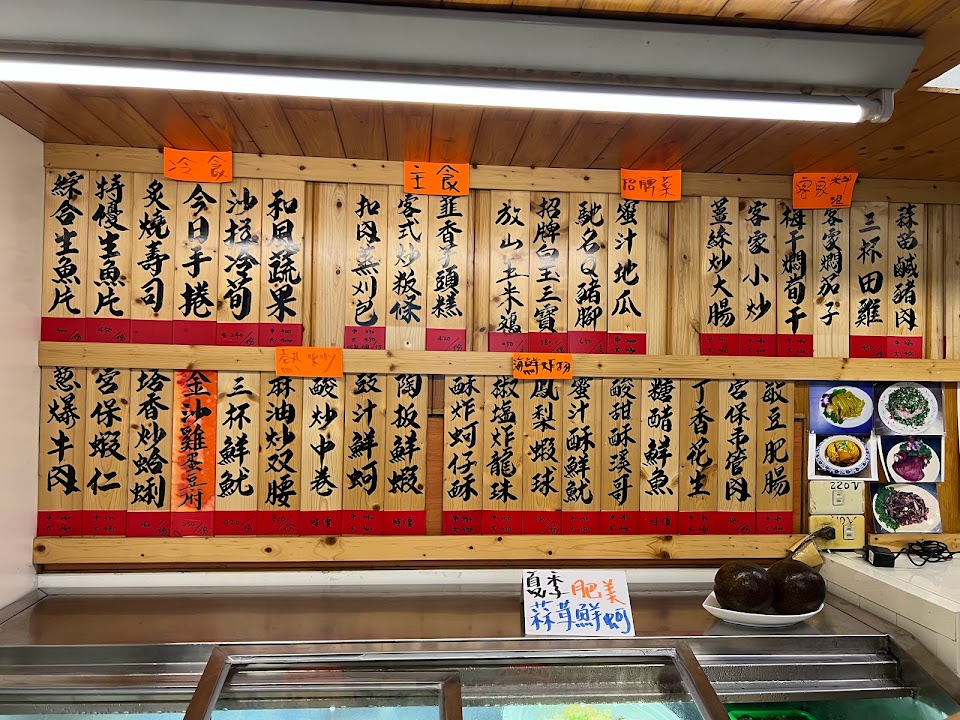 冷食
主食
招牌菜
綜合生魚片
特優生魚片
450/份
炙燒壽司
今日手捲
沙拉冷筍
和風蔬果
扣肉蒸刈包
客式炒粄條
韭香芋頭糕
放山玉米雞
招牌白玉三寶
馳名QQ豬腳
蟹汁地瓜
薑絲炒大腸
客家小炒
梅干燜筍干
客家燜茄子
三杯田雞
蒜苗鹹豬肉
海鮮炸物
蔥爆牛肉
宮保蝦仁
塔香炒蛤蜊
金沙雞蛋豆腐
三杯鮮魷
麻油炒双腰
酸炒中卷
豉汁鮮蚵
陶板鮮蝦
酥炸蚵仔酥
椒塩炸龍珠
鳳梨蝦球
蟹汁酥鮮魷
酸甜酥溪哥
糖醋鮮魚
丁香花生
宮保韋管肉
敏豆肥腸
夏季肥美
蒜茸鮮蚵